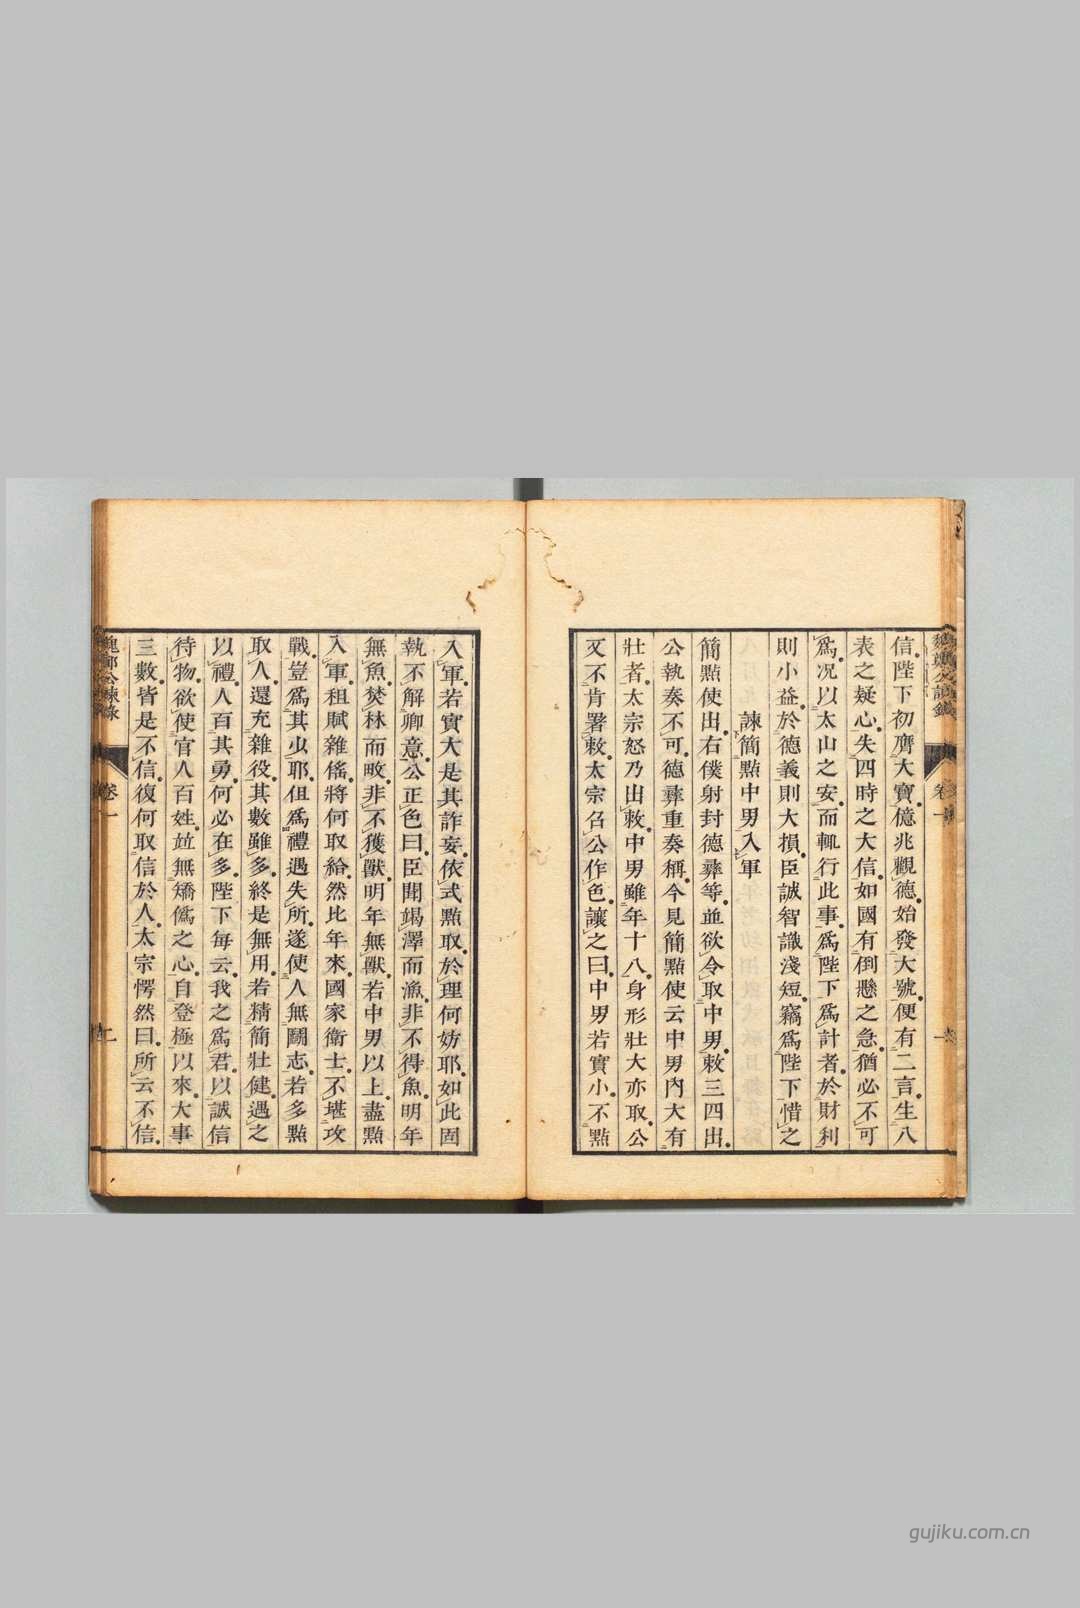 信陛下初膺大寶億兆觀德始發大號便有二言生八
表之疑心失四時之大信如國有倒懸之急猶必不可
爲況以太山之安而輒行此事爲陛下爲計者於財利
則小益於德義則大損臣誠智識淺短竊爲陛下惜之
諫簡點中男入軍
簡點使出右僕射封德彝等並欲令取中男敕三四出
公執奏不可德彝重奏稱今見簡點使云中男內大有
壯者太宗怒乃出敕中男雖年十八身形壯大亦取公
又不肯署敕太宗召公作色讓之曰中男若實小不點
入軍若實大是其詐妄依式點取於理何妨耶如此固
執不解卿意公正色曰臣聞竭澤而漁非不得魚明年
無魚焚林而畋非不獲獸明年無獸若中男以上盡點
入軍租賦雜徭將何取給然比年來國家衛士不堪攻
戰豈爲其少耶但爲禮遇失所遂使人無鬬志若多點
取人還充雜役其數雖多終是無用若精簡壯健遇之
以禮人百其勇何必在多陛下每云我之爲君以誠信
待物欲使官人百姓並無矯僞之心自登極以來大事
三數皆是不信復何取信於人太宗愕然曰所云不信
魏鄭公諫錄
卷一
二
gujiku.com.cn